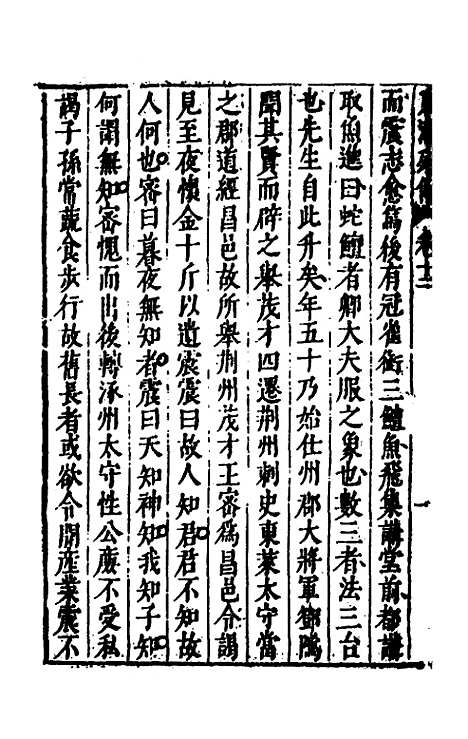 東漢列傳 卷十三 一
而震志愈篤後有冠雀銜三鱣魚飛集講堂前都講
取魚進曰蛇鱣者卿大夫服之象也數三者法三台
也先生自此升矣年五十乃始仕州郡大將軍鄧隲
聞其賢而辟之舉茂才四遷荆州刺史東萊太守當
之郡道經昌邑故所舉荆州茂才王密爲昌邑令謁
見至夜懷金十斤以遺震震曰故人知君君不知故
人何也密曰暮夜無知者震曰天知神知我知子知
何謂無知密愧而出後轉涿州太守性公廉不受私
謁子孫常蔬食步行故舊長者或欲令開產業震不